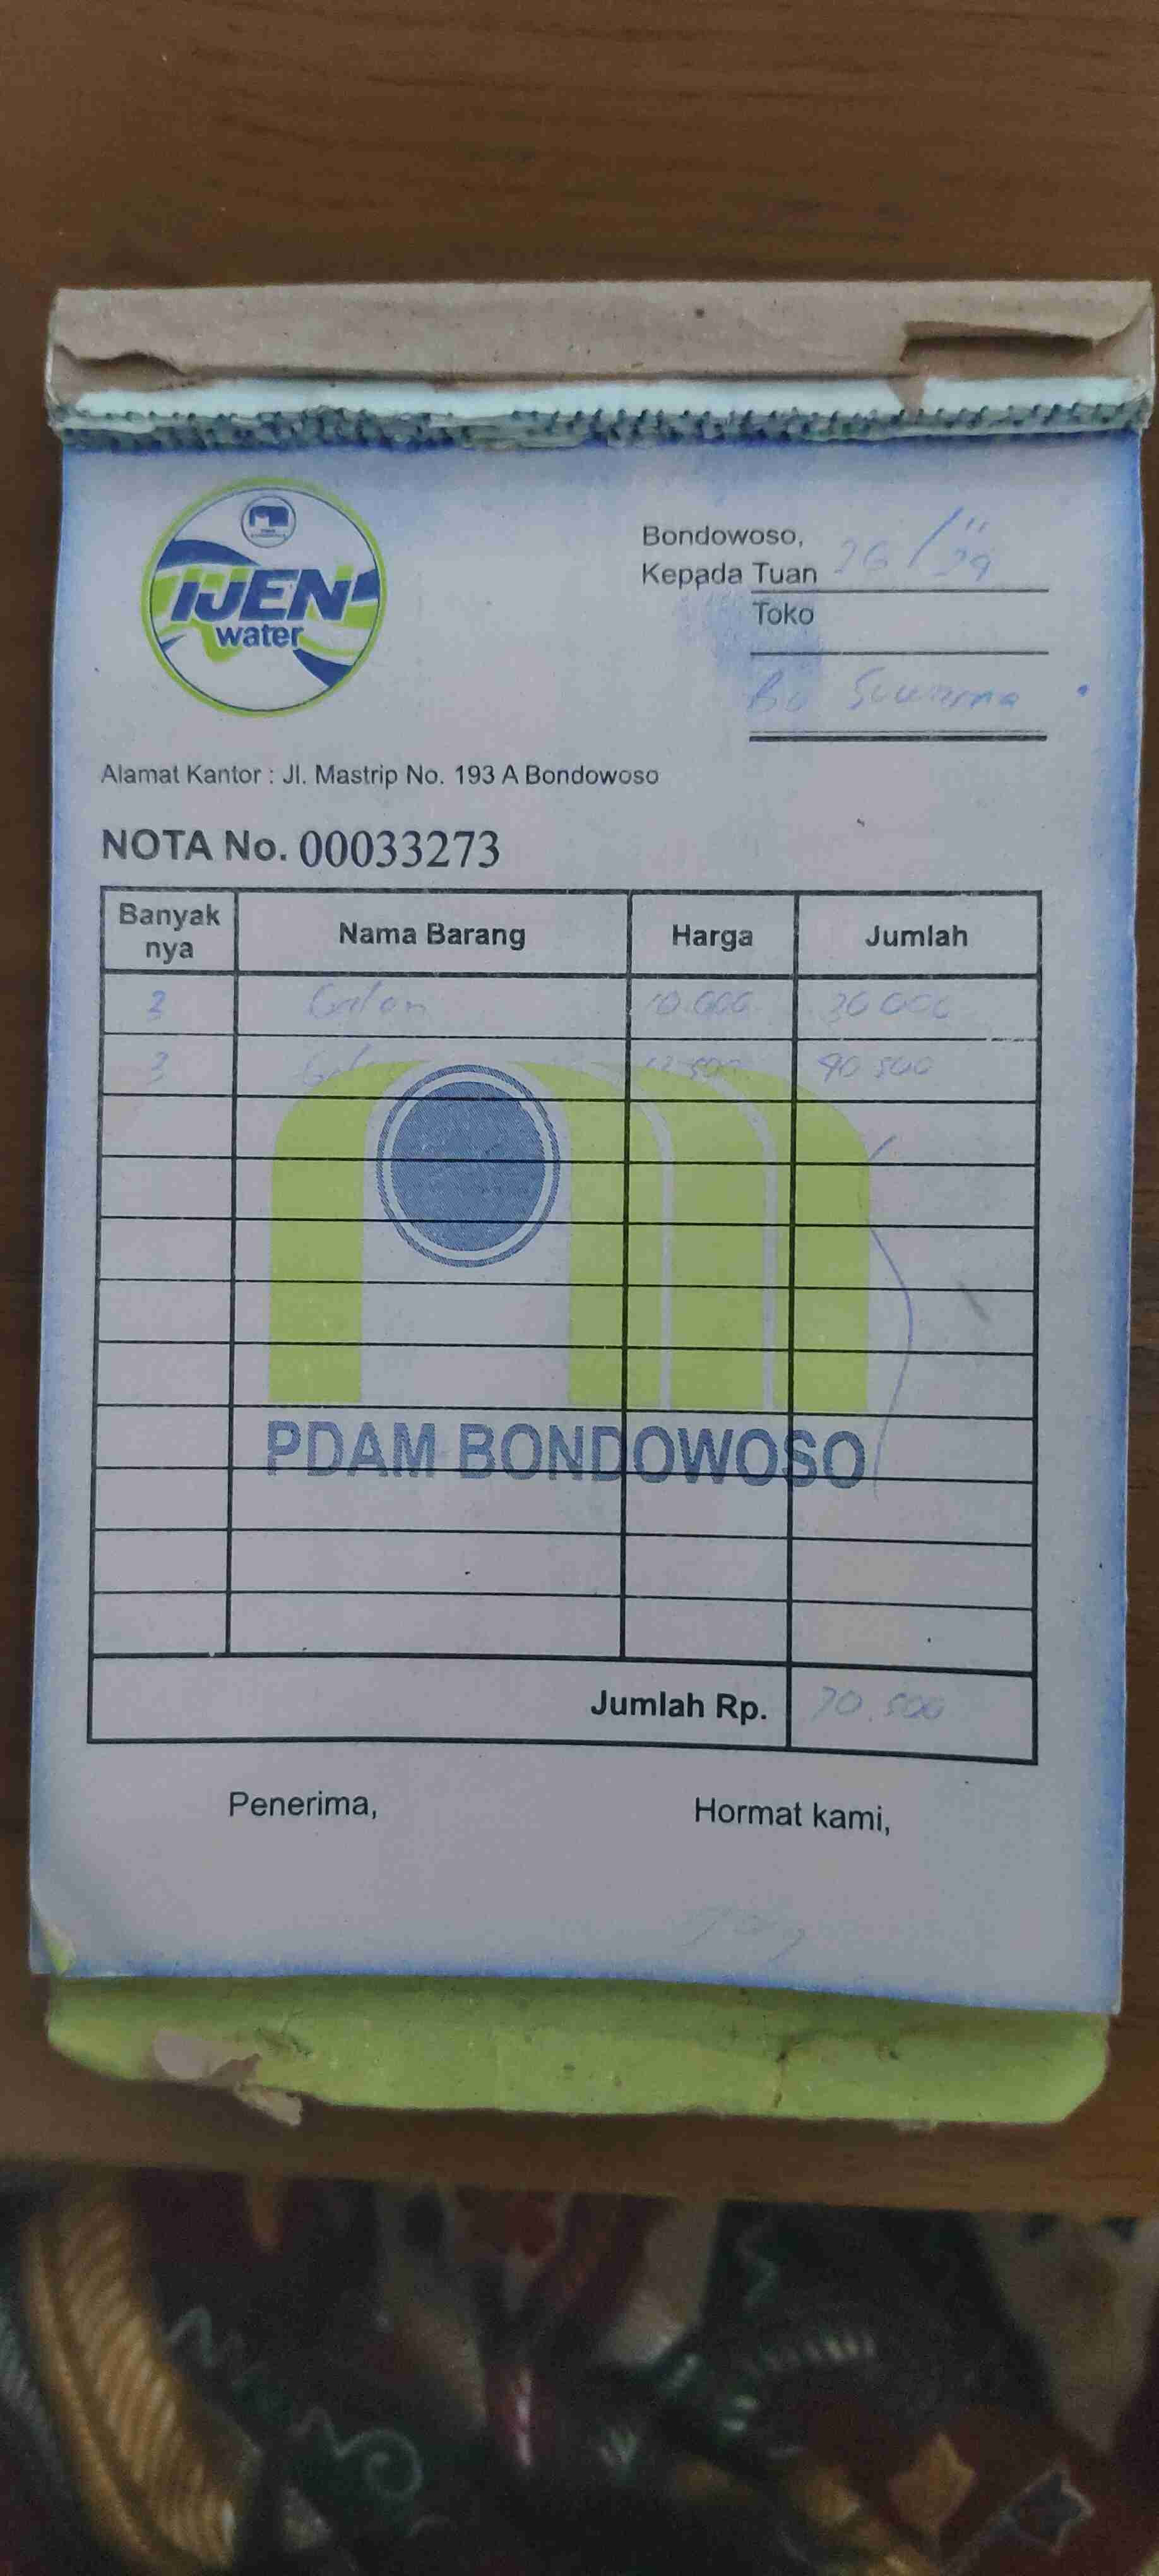 IJEN
water
Bondowoso, 26/11
Kepada Tuan
Toko
Bu
Alamat Kantor : Jl. Mastrip No. 193 A Bondowoso
NOTA No. 00033273
Banyak nya Nama Barang Harga Jumlah
3 Galon 10.000 30 000
3 40 500
PDAM BONDOWOSO
Jumlah Rp. 70.500
Penerima, Hormat kami,